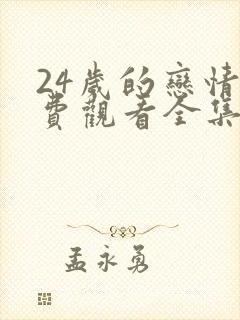 24歲的戀情
費觀看全集
孟永勇